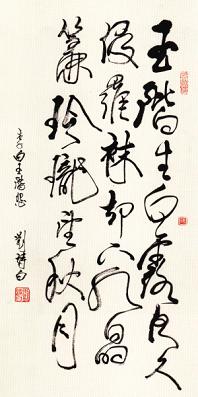 玉階生白露夜久
侵羅袜却下水晶
簾玲瓏望秋月
李白玉階怨
劉詩白